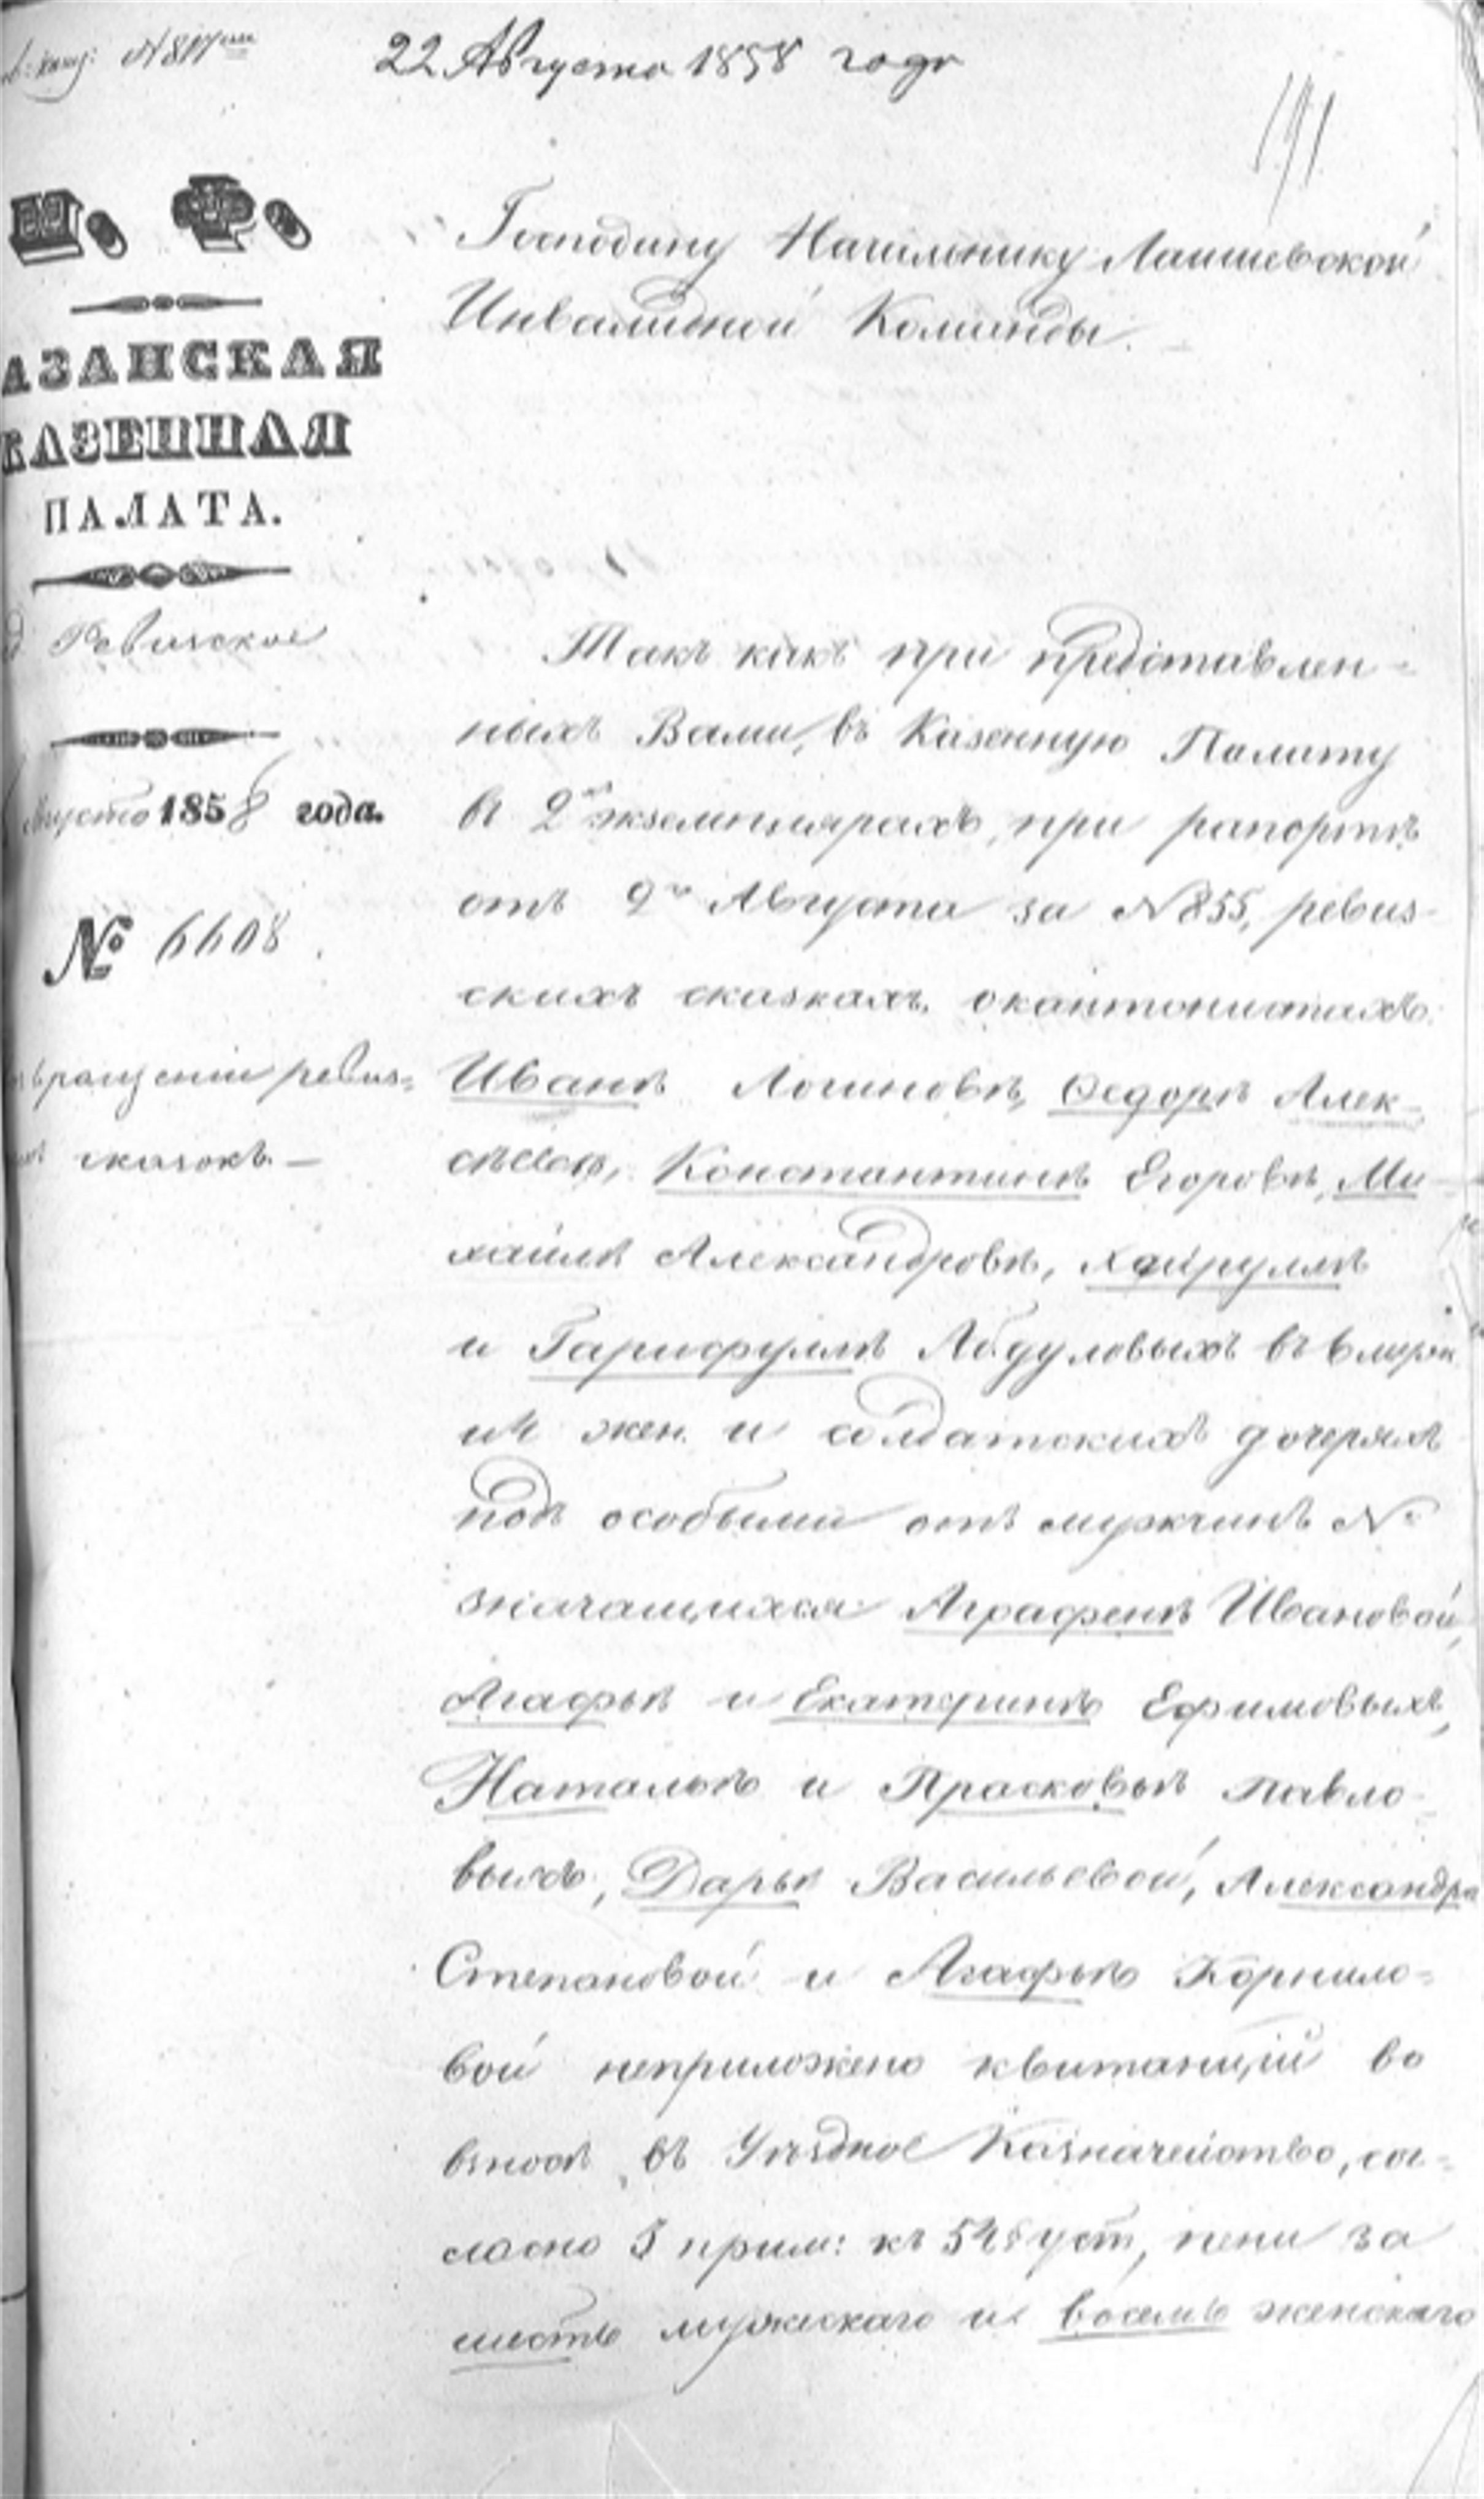 № 817
22 Августа 1858 года
191
Господину Начальнику Лаишевской
Инвалидной Команды.
АЗАНСКАЯ
КАЗЕННАЯ
ПАЛАТА.
Ревизское
Августа 1858 года.
№ 6608.
вращении ревиз=
сказокъ.—
Такъ какъ при представлен=
ныхъ Вами, въ Казенную Палату
въ 2хъ экземплярахъ, при рапортѣ
отъ 9го Августа за № 855, ревиз-
скихъ сказкахъ, о кантонистахъ:
Иванѣ Логиновѣ, Федорѣ Алек-
сѣевѣ, Константинѣ Егоровѣ, Ми-
хайлѣ Александровѣ, Хайруллѣ
и Гарифуллѣ Абдуловыхъ въ 6
жен. и солдатскихъ дочеряхъ
подъ особыми отъ мужчинъ №
значащихся: Аграфенѣ Ивановой,
Агафьѣ и Екатеринѣ Ефимовыхъ,
Натальѣ и Прасковьѣ Павло-
выхъ, Дарьѣ Васильевой, Александрѣ
Степановой и Агафьѣ Корнило=
вой неприложено квитанцiй во
взносѣ въ Уѣздное Казначейство, со=
гласно 3 прим: къ уст, пени за
шесть мужскаго и восемь женскаго